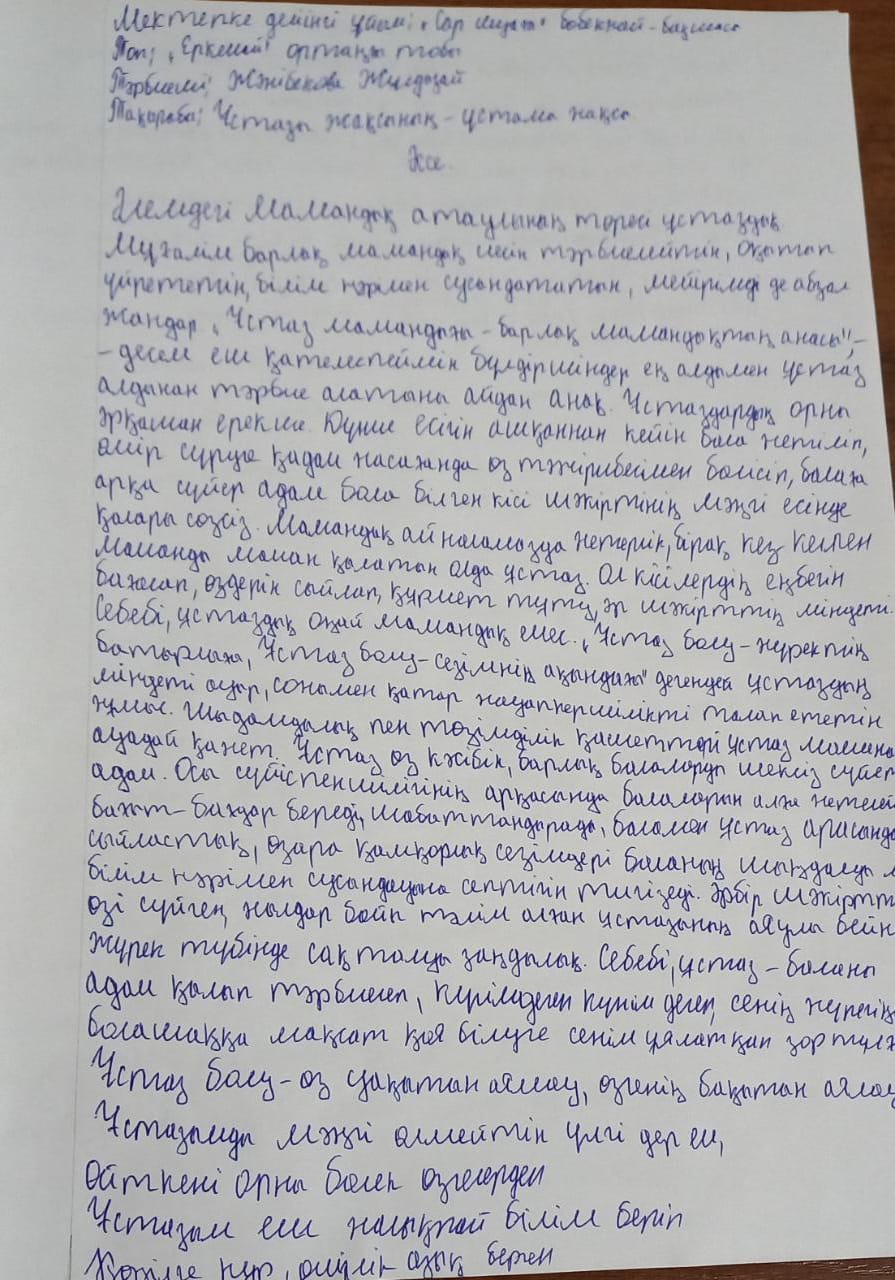 Мектепке дейінгі ұйым: "Сар" бөбекжай-бақшасы
Топ: "Еркемай" ортаңғы тобы
Тәрбиеші: Жәнібекова Жұлдызай
Тақырабы: Ұстазы жақсының - ұстамы жақсы
Эссе.
Әлемдегі мамандық атаулының төресі ұстаздық
Мұғалім барлық мамандық иесін тәрбиелейтін, оқытып
үйрететін, білім нәрімен сусындататын, мейірімді де абзал
жандар "Ұстаз мамандығы - барлық мамандықтың анасы", -
- десем еш қателеспеймін бүлдіршіндер ең алдымен ұстаз
алдынан тәрбие алатыны айдан анық. Ұстаздардың орны
әрқашан ерекше. Дүние есігін ашқаннан кейін бала жетіліп,
өмір сүруге қадам жасағанда өз тәжірибесімен бөлісіп, балаға
арқа сүйер адам бола білген кісі шәкіртінің мәңгі есінде
қалары сөзсіз. Мамандық айналамызда жетерлік, бірақ кез келген
маманды маман қылатын олда ұстаз. Ол кісілердің еңбегін
бағалап, өздерін сыйлап, құрмет тұту, әр шәкірттің міндеті.
Себебі, ұстаздық оңай мамандық емес. "Ұстаз болу - жүректің
батырлығы, Ұстаз болу - сезімнің ақындығы" дегендей ұстаздың
міндеті ауыр, сонымен қатар жауапкершілікті талап ететін
жұмыс. Шыдамдылық пен төзімділік қасиеттері ұстаз
ауадай қажет. Ұстаз өз кәсібін, барлық балаларды шексіз сүйетін
адам. Осы сүйіспеншілігінің арқасында балаларын алға жетелей
бағыт-бағдар береді, шабыттандырады, баламен ұстаз арасында
сыйластық, өзара қамқорлық сезімдері баланың шыңдалуы
білім нәрімен сусындауына септігін тигізеді. Әрбір шәкіртт
өзі сүйген, жылдар бойы тәлім алған ұстазының аяулы бейн
жүрек түбінде сақталуы заңдылық. Себебі, ұстаз - баланы
адам қылып тәрбиелеп, күнім деген, сенің жүрегің
болашаққа мақсат қоя білуге сенім ұялатқан зор тұлғ
Ұстаз болу - өз уақытын аямау, өзгенің бақытын аялау
Ұстазымды мәңгі өлмейтін үлгі дер ем,
Өйткені орны бөлек өзгелерден
Ұстазым еш жалықпай білім беріп
Көңілге нұр, өмірлік азық берген